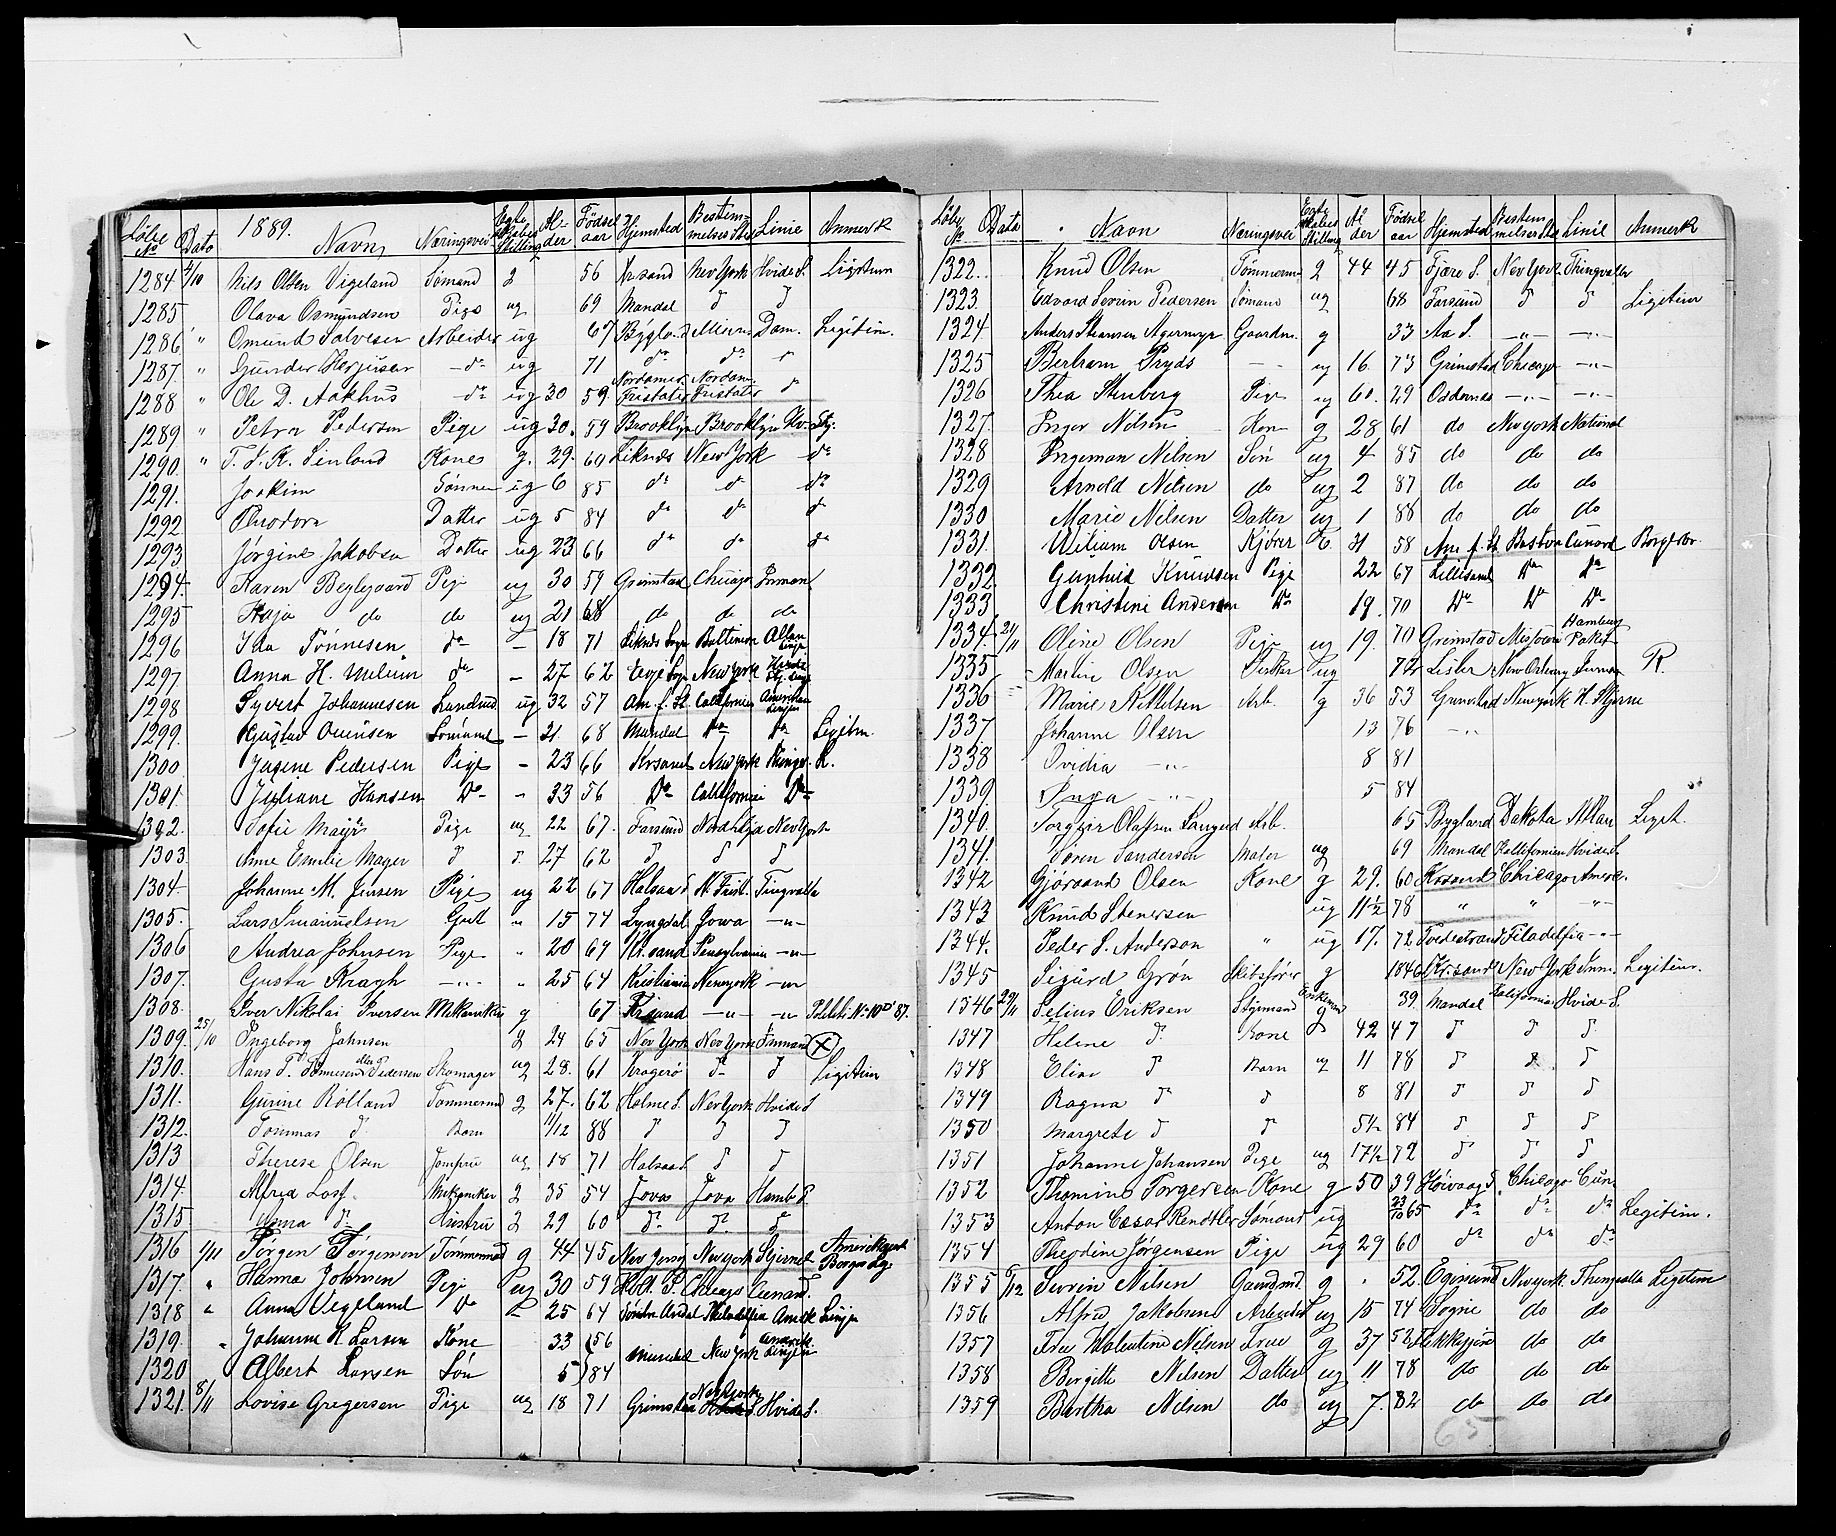 Løbe No Dato 1889. Navn Næringsvei Egteskabs Stilling Alder Fødselsaar Hjemsted Bestemmelses Sted Linie Anmerk
1284 4/10 Nils Olsen Vigeland Sømand g 56 Kr.sand New York Hvide S. Legitim
1285 Olava Osmundsen Pige ug 69 Mandal d d
1286 " Omund Salvesen Arbeider ug 67 Bygland Dam. Legitim.
1287. " Gunder Herjusen do ug 71 do do
1288 " Ole D. Aakhus do ug 30 59 Nordamr. Fristater Nordam. Fristater do
1289 " Petra Pedersen Pige ug 30. 59 Brooklyn Brooklyn Hv. Stj.
1290. " T. S. K. Senland Kone g. 29. 60 Liknæs New York do
1291. Joakim Sønnen ug 6 85 do do do
1292. Theodora Datter ug 5 84 do do do
1293 Jørgine Jakobsen Datter ug 23 66 do do do
1294. Karen Beglegaard Pige ug 30 59 Grimstad Chicago Inman
1295 Kaja do do ug 21 68 do do do
1296 Ida Tønnesen do - 18 71 Liknæs Sogn Baltimore Allan Linje
1297 Anna H. do - 27 62 New York Hvide Stj. Linje
1298 Syvert Johannesen Landmd ug 32 57 Am. f. St. Californien American Linjen
1299. Gustad Sømand - 21. 68 Mandal Do Do Legitm.
1300 Jugene Pedersen Pige - 23 66 Krsand New York Thingv. R.
1301. Juliane Hansen Do - 33 56 Do Californien Do
1302. Sofie Pige ug 22 67. Farsund New York
1303 Ane Emilie Mager d d. 27 62 d d d
1304 Johanne M. Jensen Pige ug 22 67 Halsaa S N. Frist. Tingvalla
1305. Lars Emanuelsen Gut " 15 74 Lyngdal Jowa -"-
1306 Andrea Johnsen Pige " 20 69 Kr.sand Pensylvanien -"-
1307. Gusta Kragh -"- " 25 64 Kristiania Newyork -"-
1308. Iver Nikolai Iversen Mekanikus g 67 Kr.sand -"- -"- No 10 87.
1309. 25/10 Ingeborg Johnsen g 24 65 New York New York Inman
1310. Hans P. Tønnesen eller Pedersen Skomager ug 28. 61 Kragerø d d Legitim
1311. Gurine Rolland Tømmermd g 27. 62 Holme S. New York Hvide S
1312. Tommas d Barn 11/12 88 d d d
1313 Therese Olsen Jomfru ug 18 71 Halsaa S. d d
1314. Alfred Losf. Mekaniker g 35 54 Jova Jova Hamb. P.
1315 do Hustru g 29 60 do do d
1316 1/11 Jørgen Jørgensen Tømmermd g 44 45 New Jersy New York Stjernel.
1317. " Hanna Johnsen Pige ug 30 59 Chicago Cunard.
1318 " Anna Vegeland Do " 25 64 Søndre Undal Filadelfia Amrk Linje
1319. " Johanne K. Larsen Kone 33 56 Mandal New York Amerik. Linjen
1320 Albert Larsen Søn 5 84
1321. 8/11 Lovise Gregersen Pige ug 18 71 Grimstad New York Hvide S.
Løbe No Dato Navn Næringsvei Egteskabs Stilling Alder Fødsel aar Hjemsted Bestemmelses Sted Linie Anmerk
1322. Knud Olsen Tømmerm g 44 45 Fjære S. New York Thingvalla
1323. Edvard Severin Pedersen Sømand ug 68 Farsund d d Legitim
1324. Anders Gaardm. g 33 Aa S. -"- -"-
1325 Bertram Pryds - ug 16. 73 Grimstad Chicago -"-
1326 Thea Stenberg Pige ug 60. 29 Oddernes -"- -"-
1327. Inger Nilsen Kone g 28 61 do New York National
1328 Ingeman Nilsen Søn ug 4 85 do do do
1329 Arnold Nilsen do ug 2 87 do do do
1330 Marie Nilsen Datter ug 1 88 do do do
1331. Wiliam Olsen Kjører 31 58 Am f. St Boston Cunard Borgerbr.
1332 Gunhild Knudsen Pige 22 67 Lillesand Do Do
1333 Christine Andersen Do 19. 70 Do Do Do
1334. 21/11 Oline Olsen Pige ug 19. 70 Grimstad Missouri Hamburg Paket
1335 Martin Olsen Fisker ug 72 Lister New Orleans Inman R.
1336 Marie Kittelsen Arb. g 36 53 Grimstad New York H. Stjerne
1337 Johanne Olsen 13 76 -"-
1338 Ovidia -"- 8 81
1339. Inga -"- 5 84
1340. Torgeir Olafsen Langeid Arb. 65 Bygland Dakota Allan Legit.
1341. Søren Sandersen Maler ug 69 Mandal Kallifornien Hvide S.
1342 Gjørsand Olsen Kone g 29. 60 Krsand Chicago Ameri.
1343 Knud Stenersen ug 11½ 78 " " -"-
1344. Peder S. Anderson " ug 17. 72 Tvedestrand Filadelfia -"-
1345 Sigurd Grøn Skibsfører g 1846 Kr.sand New York Inm. Legitim.
1346 29/11 Selius Eriksen Styrmand Enkemand g 39. Mandal Kalifornien Hvide S.
1347 Helene d. Kone g 42 47 d d d.
1348 Elise d Barn ug 11 78 d d d
1349 Ragna d d 8 81 d d d
1350 Margrete d d 5½ 84 d d d
1351 Johanne Johansen Pige ug 17½ 72 d d d
1352 Thomine Torgersen Kone g 50 39 Høivaag S. Chicago Cun.
1353 Anton Cæsar Rendtler Sømand ug 23/10 65 do do do Legitim.
1354 Theodine Jørgensen Pige ug 29 60 do do do
1355 6/12 Severin Nilsen Gaardmd. g " 52. Egersund New york. Thingvalla Legitim
1356 Alfred Jakobsen Arbeider ug 15 74 Søgne do do
1357 Fru Valentine Nilsen Frue g 37 52 Flekkefjord do do
1358 Birgitte Nilsen Datter ug 11 78 do do do
1359 Bertha Nilsen do ug 7. 82 do do do
65